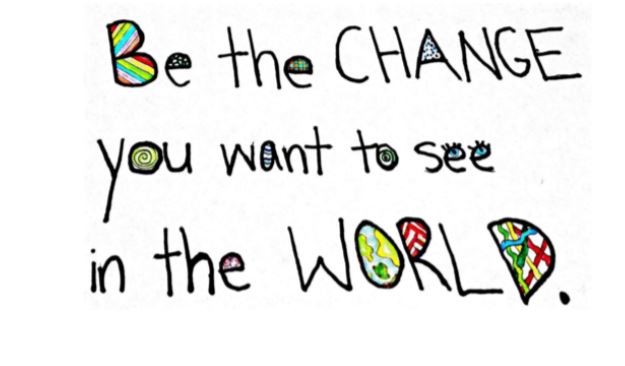 Be the CHANGE
you want to see
in the WORLD.